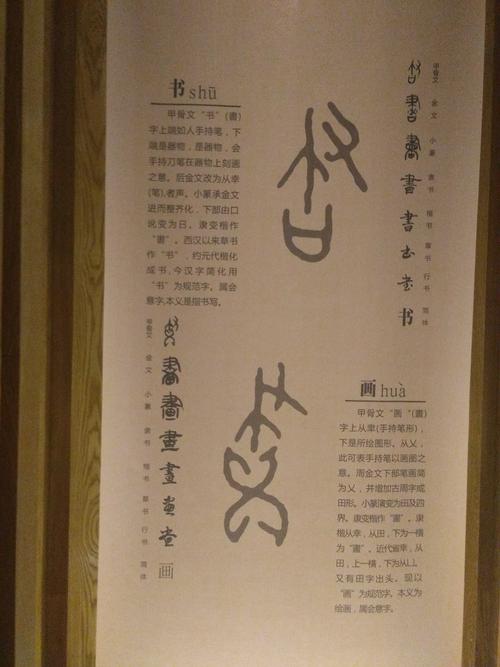 书 shū
甲骨文“书”(書)
字上端如人手持笔，下
端是器物，是器物，会
手持刀笔在器物上刻画
之意。后金文改为从聿
(笔),者声。小篆承金文
进而整齐化，下部由口
讹变为日。隶变楷作
“書”。西汉以来草书
作“书”，约元代楷化
成书，今汉字简化用
“书”为规范字。属会
意字,本义是指书写。
甲骨文 金文 小篆 隶书 楷书 草书 行书 简体
書 書 书
画 huà
甲骨文“画”(畫)
字上从聿(手持笔形),
下是所绘图形。从乂，
此可表手持笔以画图之
意。周金文下部笔画简
为乂，并增加古周字或
田形。小篆演变为田及四
界。隶变楷作“畫”。隶
楷从聿，从田，下为一横
为“畫”。近代省聿，从
田，上一横，下为从凵，
又有田字出头。现以
“画”为规范字。本义为
绘画，属会意字。
甲骨文 金文 小篆 隶书 楷书 草书 行书 简体
畫 畫 画